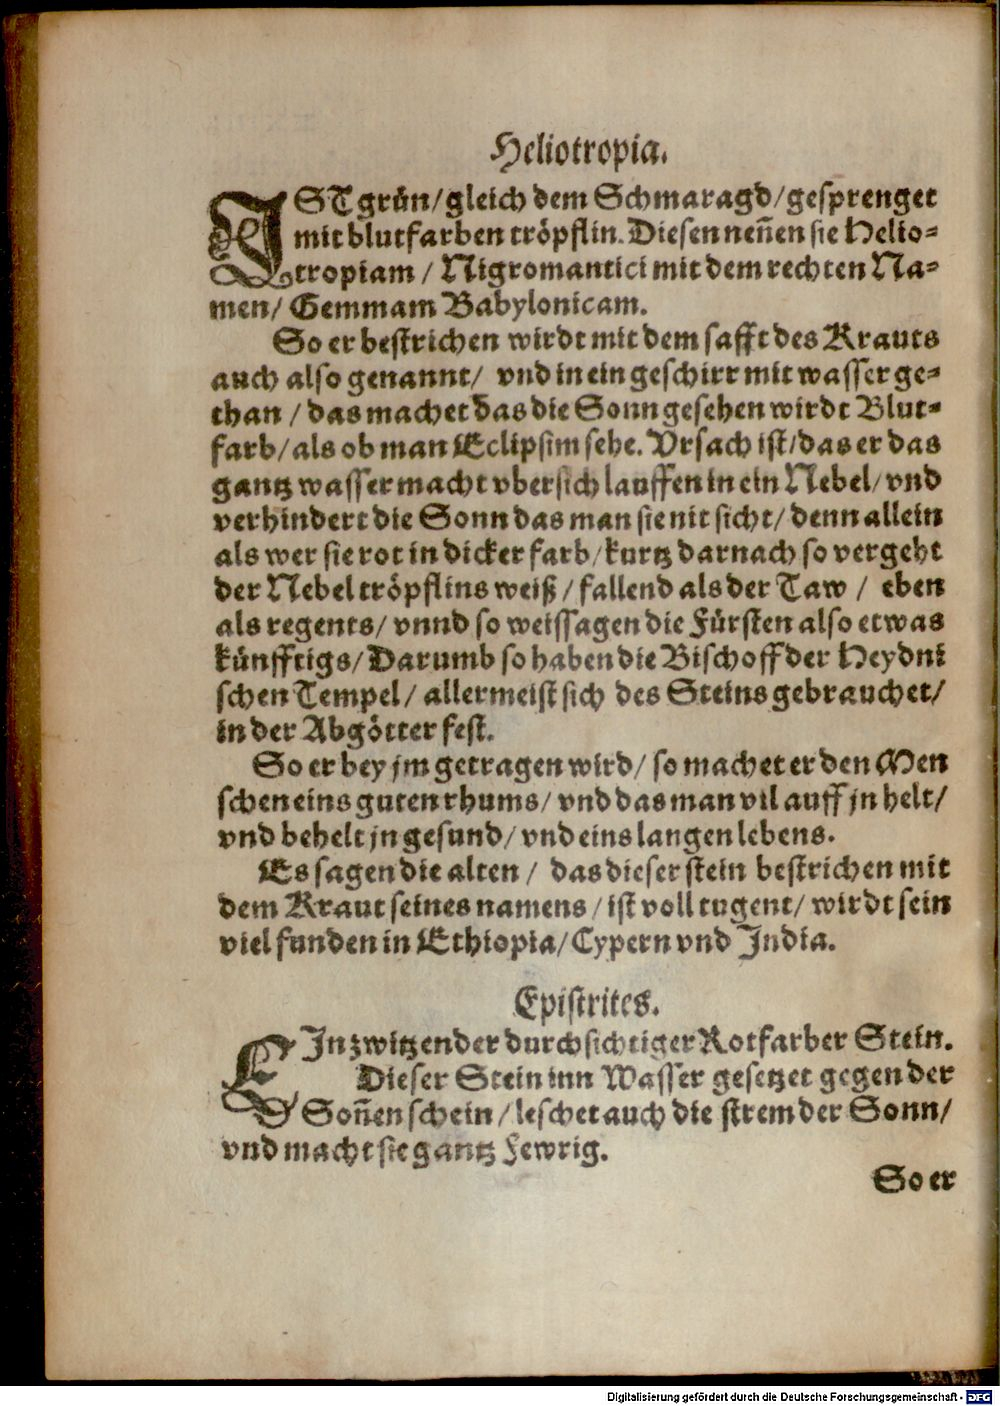 Heliotropia.
IST grün/gleich dem Schmaragd/gesprenget
mit blutfarben tröpflin. Diesen neñen sie Helio-
tropiam / Nigromantici mit dem rechten Na-
men/ Gemmam Babylonicam.
So er bestrichen wirdt mit dem safft des Krauts
auch also genannt/ vnd in ein geschirr mit wasser ge-
than / das machet das die Sonn gesehen wirdt Blut-
farb/als ob man Eclipsim sehe. Vrsach ist/das er das
gantz wasser macht vbersich lauffen in ein Nebel/vnd
verhindert die Sonn das man sie nit sicht/denn allein
als wer sie rot in dicker farb/kurtz darnach so vergeht
der Nebel tröpflins weiß/fallend als der Taw / eben
als regents/ vnnd so weissagen die Fürsten also etwas
künfftigs/Darumb so haben die Bischoff der Heydni
schen Tempel/ allermeist sich des Steins gebrauchet/
in der Abgötter fest.
So er bey jm getragen wird/ so machet er den Men
schen eins guten rhums/vnd das man vil auff jn helt/
vnd behelt jn gesund/vnd eins langen lebens.
Es sagen die alten / das dieser stein bestrichen mit
dem Kraut seines namens/ist voll tugent/wirdt sein
viel funden in Ethiopia/Cypern vnd India.
Epistrites.
EIn zwitzender durchsichtiger Rotfarber Stein.
Dieser Stein inn Wasser gesetzet gegen der
Soñen schein/leschet auch die strem der Sonn/
vnd macht sie gantz Fewrig.
So er
Digitalisierung gefördert durch die Deutsche Forschungsgemeinschaft - DFG